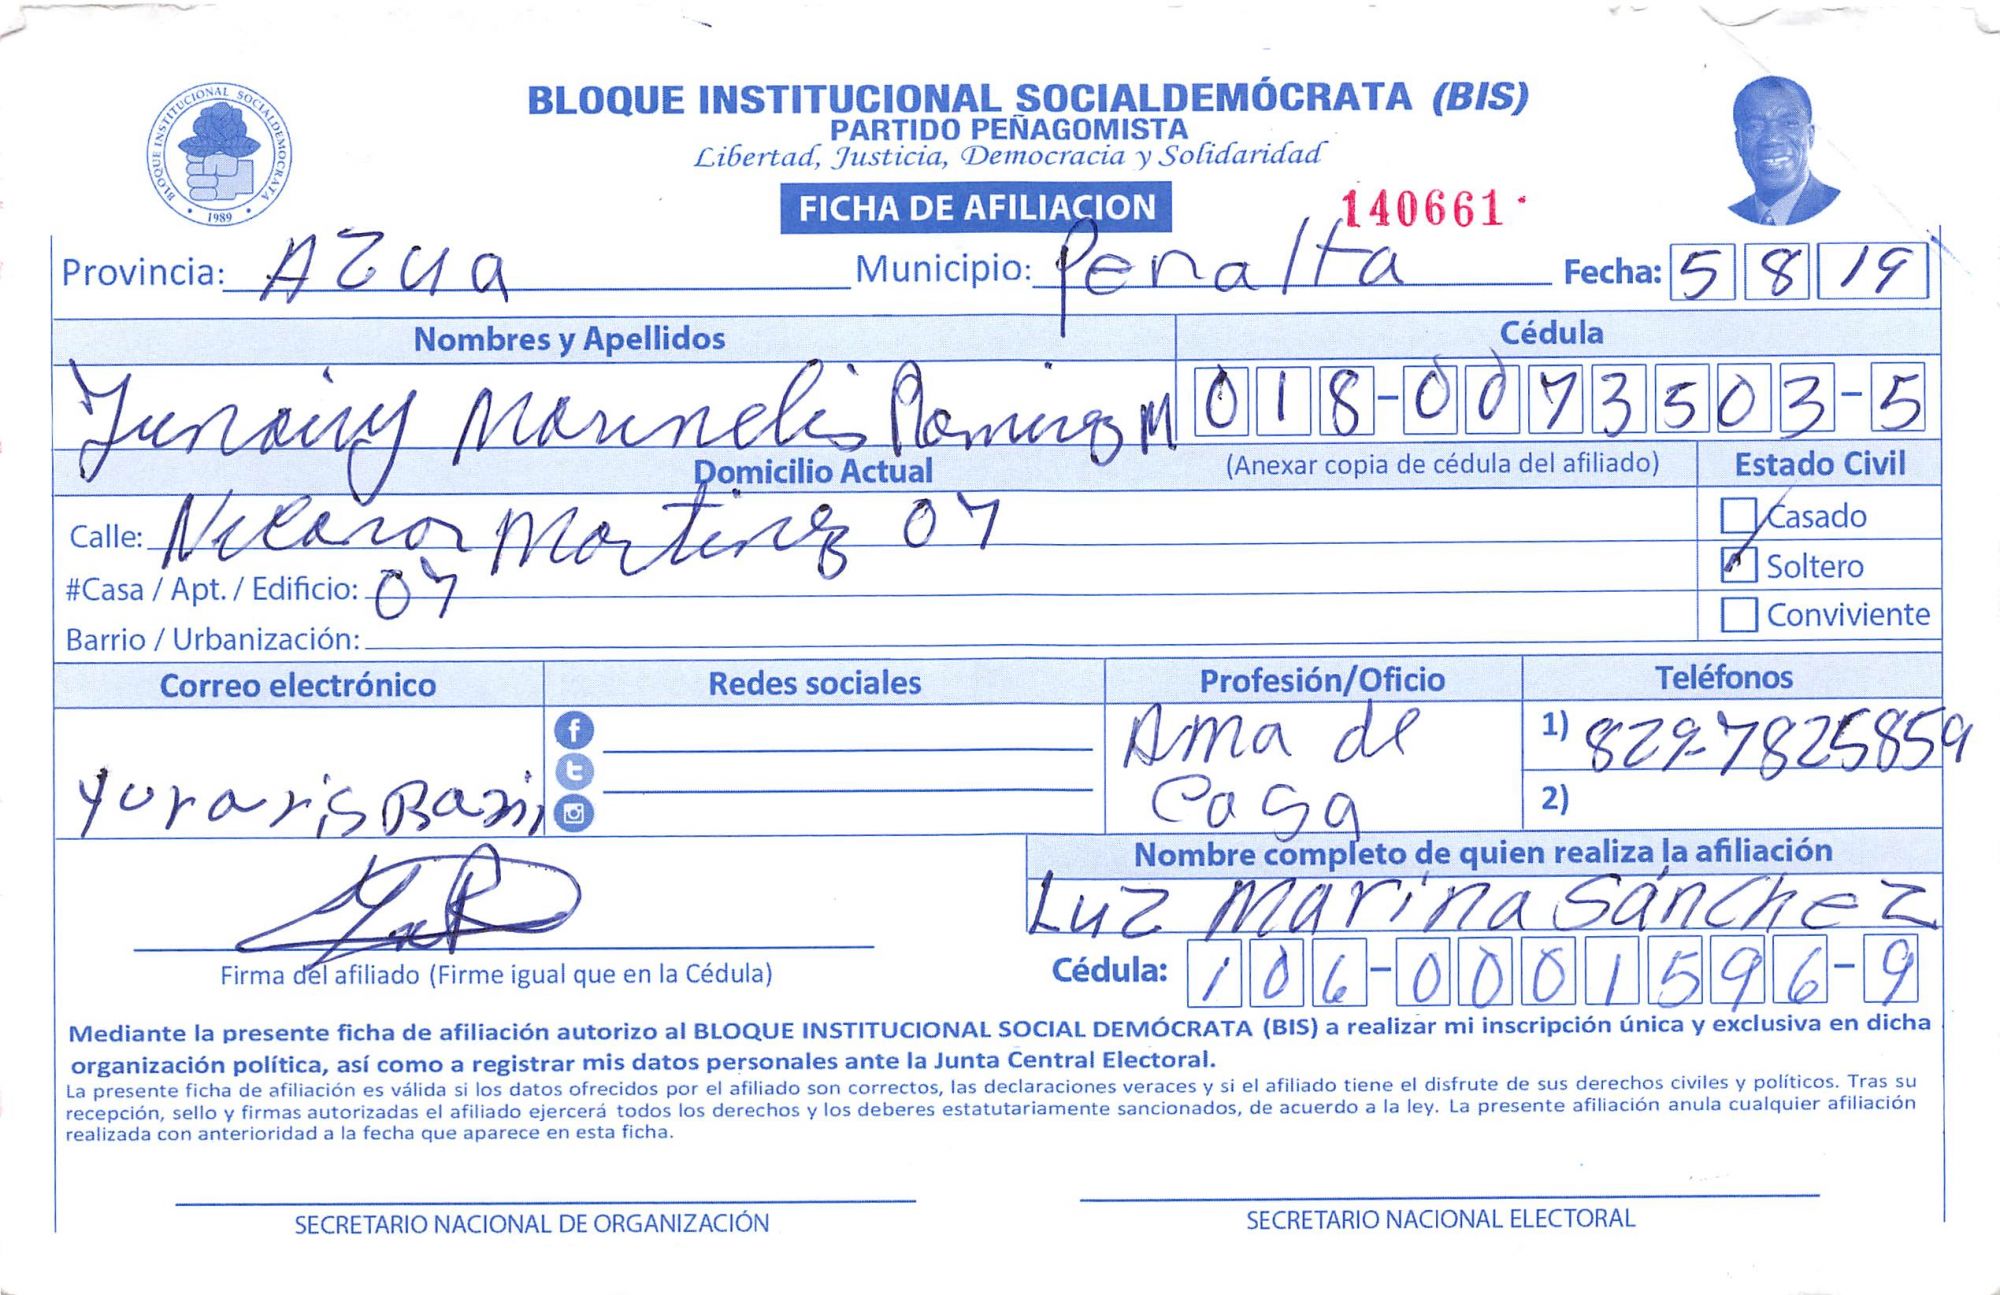 BLOQUE INSTITUCIONAL SOCIALDEMOCRATA
1989
BLOQUE INSTITUCIONAL SOCIALDEMÓCRATA (BIS)
PARTIDO PEÑAGOMISTA
Libertad, Justicia, Democracia y Solidaridad
FICHA DE AFILIACION 140661
Provincia: AZUA Municipio: Peralta Fecha: 5 8 19
Nombres y Apellidos Cédula
Marinelis Ramirez M 018-0073503-5
Domicilio Actual (Anexar copia de cédula del afiliado) Estado Civil
Calle: Nicanor Martinez 07 Casado
#Casa / Apt. / Edificio: 07 Soltero
Barrio / Urbanización: Conviviente
Correo electrónico Redes sociales Profesión/Oficio Teléfonos
Ama de 1) 829-7825859
Casa 2)
Nombre completo de quien realiza la afiliación
Luz Marina Sánchez
Firma del afiliado (Firme igual que en la Cédula) Cédula: 106-0001596-9
Mediante la presente ficha de afiliación autorizo al BLOQUE INSTITUCIONAL SOCIAL DEMÓCRATA (BIS) a realizar mi inscripción única y exclusiva en dicha
organización política, así como a registrar mis datos personales ante la Junta Central Electoral.
La presente ficha de afiliación es válida si los datos ofrecidos por el afiliado son correctos, las declaraciones veraces y si el afiliado tiene el disfrute de sus derechos civiles y políticos. Tras su
recepción, sello y firmas autorizadas el afiliado ejercerá todos los derechos y los deberes estatutariamente sancionados, de acuerdo a la ley. La presente afiliación anula cualquier afiliación
realizada con anterioridad a la fecha que aparece en esta ficha.
SECRETARIO NACIONAL DE ORGANIZACIÓN SECRETARIO NACIONAL ELECTORAL